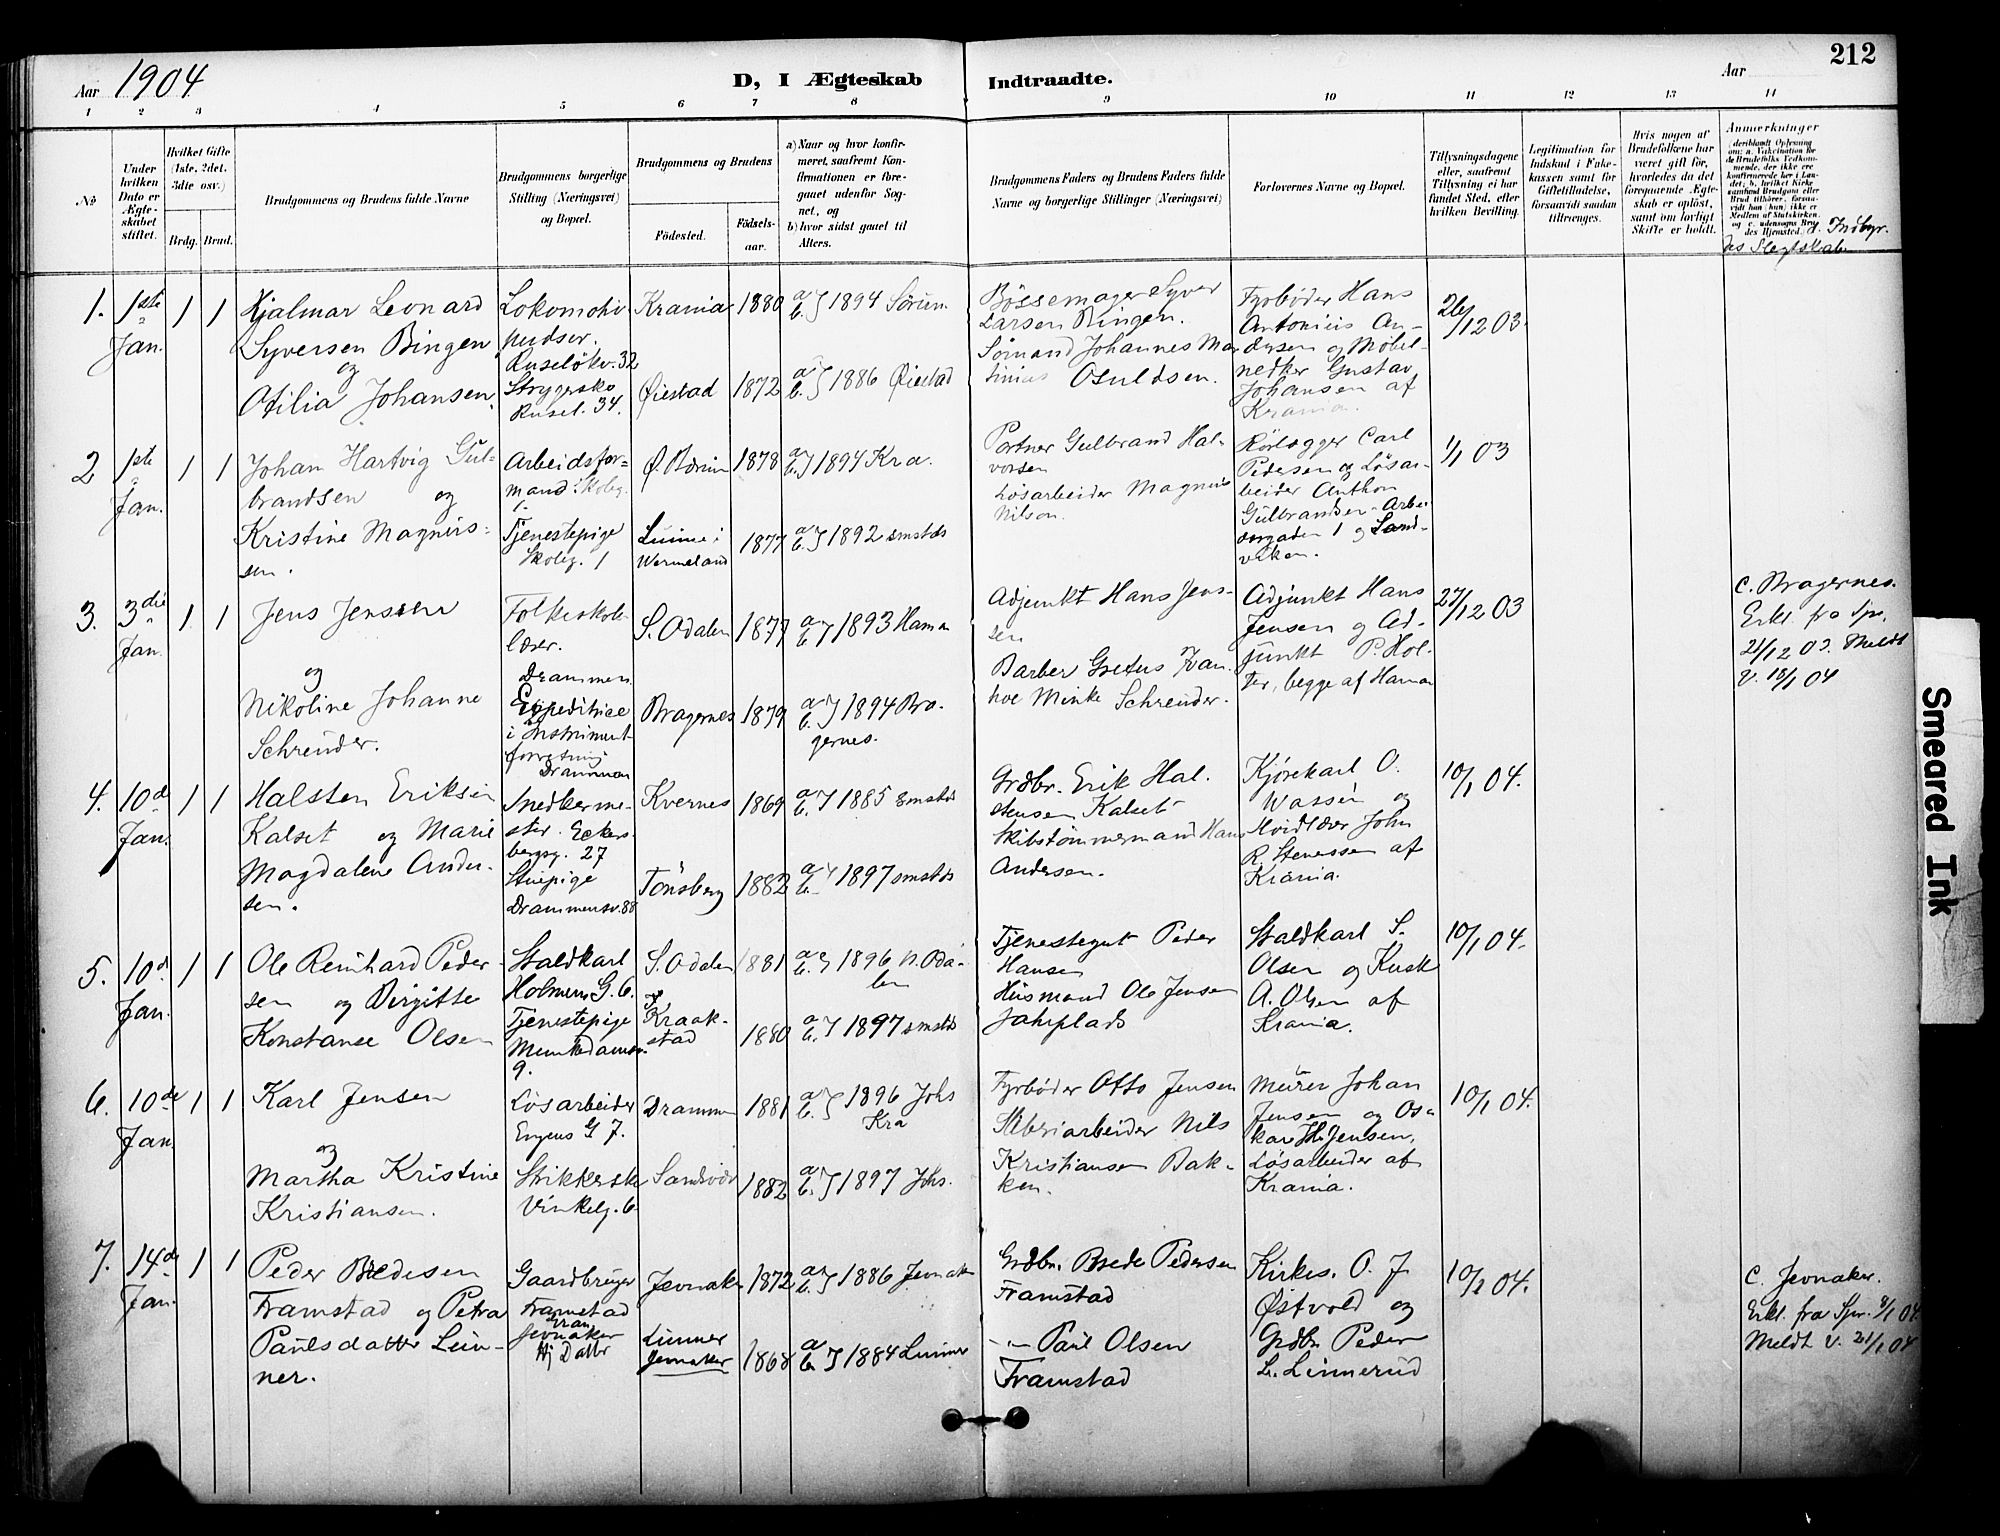 Aar 1904
D, I Ægteskab Indtraadte.
Aar
212
1 2 3 4 5 6 7 8 9 10 11 12 13 14
No
Under hvilken Dato er Ægteskabet stiftet.
Hvilket Gifte (1ste, 2det, 3die osv.)
Brdg. Brud.
Brudgommens og Brudens fulde Navne
Brudgommens borgerlige Stilling (Næringsvei) og Bopæl.
Brudgommens og Brudens
Fødested.
Fødselsaar.
a) Naar og hvor konfirmeret, saafremt Konfirmationen er foregaaet udenfor Sognet, og
b) hvor sidst gaaet til Alters.
Brudgommens Faders og Brudens Faders fulde Navne og borgerlige Stillinger (Næringsvei)
Forlovernes Navne og Bopæl.
Tillysningsdagene eller, saafremt Tillysning ei har fundet Sted, efter hvilken Bevilling.
Legitimation for Indskud i Enkekassen samt for Giftetilladelse, forsaavidt saadan tiltrænges.
Hvis nogen af Brudefolkene har været gift før, hvorledes da det foregaaende Ægteskab er opløst, samt om lovligt Skifte er holdt.
Anmerkninger
(deriblandt Oplysning om: a. Vakcination for de Brudefolks Vedkommende, der ikke ere konfirmerede her i Landet; b. hvilket Kirkesamfund Brudgom eller Brud tilhører, forsaavidt han (hun) ikke er Medlem af Statskirken, og c. udensogns Brudes Hjemsted. d. Indbyr-
des Slegtskab
1. 1ste Jan. 1 1
Hjalmar Leonard
Syversen Bingen
og
Otilia Johansen.
Lokomotiv
pudser.
Ruseløkv. 32
Strygerske
Rusel. 34.
Krania 1880 a b } 1894 Sørum
Øiestad 1872 a b } 1886 Øiestad
Bøssemager Syver
Larsen Bingen.
Sømand Johannes Mar
tinius Osuldsen.
Fyrbøder Hans
Antonius An-
dersen og Møbel-
snedker Gustav
Johansen af
Krania.
26/12 03.
2 1ste Jan. 1 1
Johan Hartvig Gul-
brandsen og
Kristine Magnus-
sen.
Arbeidsfor-
mand: Skoleg.
1.
Tjenestepige
Skoleg. 1
Ø. Bærum 1878 a b } 1894 Kra.
Wermeland 1877 a b } 1892 smstds
Portner Gulbrand Hal-
vorsen
Løsarbeider Magnus
Nilson.
Rørlægger Carl
Pedersen og Løsar-
beider Anthon
Gulbrandsen. Arbei
dergaden 1 og Sand-
viken.
1/1 03
3. 3die Jan. 1 1
Jens Jenssen
og
Nikoline Johanne
Schreuder.
Folkeskole
lærer.
Drammen
Expeditrice
i Instrument
forretning
Drammen
S. Odalen 1877 a b } 1893 Hamar
Bragernes 1879 a b } 1894 Bra-
gernes.
Adjunkt Hans Jens-
sen
Barber Gretus Ivan-
hoe Minke Schreuder.
Adjunkt Hans
Jensen og Ad-
junkt P. Hol-
ter, begge af Hamar
27/12 03
c. Bragernes.
Erkl. fra Spr.
21/12 03. Meldt
v. 18/1 04
4. 10de Jan. 1 1
Halsten Eriksen
Kalset og Marie
Magdalene Ander-
sen.
Snedkerme-
ster. Eckers-
bergsg. 27
Stuepige
Drammensv. 88
Kvernes 1869 a b } 1885 smstds
Tönsberg 1882 a b } 1897 smstds
Grdbr. Erik Hal-
stensen Kalset
Skibstømmermand Hans
Andersen.
Kjørekarl O.
Wassen og
Hvidlær John
R. Stenessen af
Krania.
10/1 04.
5. 10de Jan. 1 1
Ole Reinhard Peder-
sen og Birgitte
Konstanse Olsen
Staldkarl
Holmens G. 6.
Tjenestepige
Munkedamsv.
9.
S. Odalen 1881 a b } 1896 N. Oda-
len
Kraak-
stad 1880 a b } 1897 smstds
Tjenestegut Peder
Hansen
Husmand Ole Jensen
Jahrplads
Staldkarl S.
Olsen og Kusk
A. Olsen af
Krania.
10/1 04.
6. 10de Jan. 1 1
Karl Jensen
og
Martha Kristine
Kristiansen.
Løsarbeider
Engens G 7.
Strikkerske
Vinkelg. 6
Drammen 1881 a b } 1896 Johs
Kra
Sandviken 1882 a b } 1897 Johs.
Fyrbøder Otto Jensen
Støberiarbeider Nils
Kristiansen Bak-
ken.
Murer Johan
Jensen og Os-
kar H. Jensen,
Løsarbeider af
Krania.
10/1 04.
7. 14de Jan. 1 1
Peder Bredesen
Framstad og Petra
Paulsdatter Lun-
ner.
Gaardbruger
Framstad
Gran
Jevnaker
Hj Datter
Jevnaker 1872 a b } 1886 Jevnaker
Lunner
Jevnaker 1868 a b } 1884 Lunner
Grdbr. Brede Pedersen
Framstad
-"- Paul Olsen
Framstad
Kirkes. O. J.
Østvold og
Grdbr Peder
L. Linnerud
10/1 04.
c. Jevnaker.
Erkl. fra Spr. 9/1 04.
Meldt v. 21/1 04
Smeared Ink